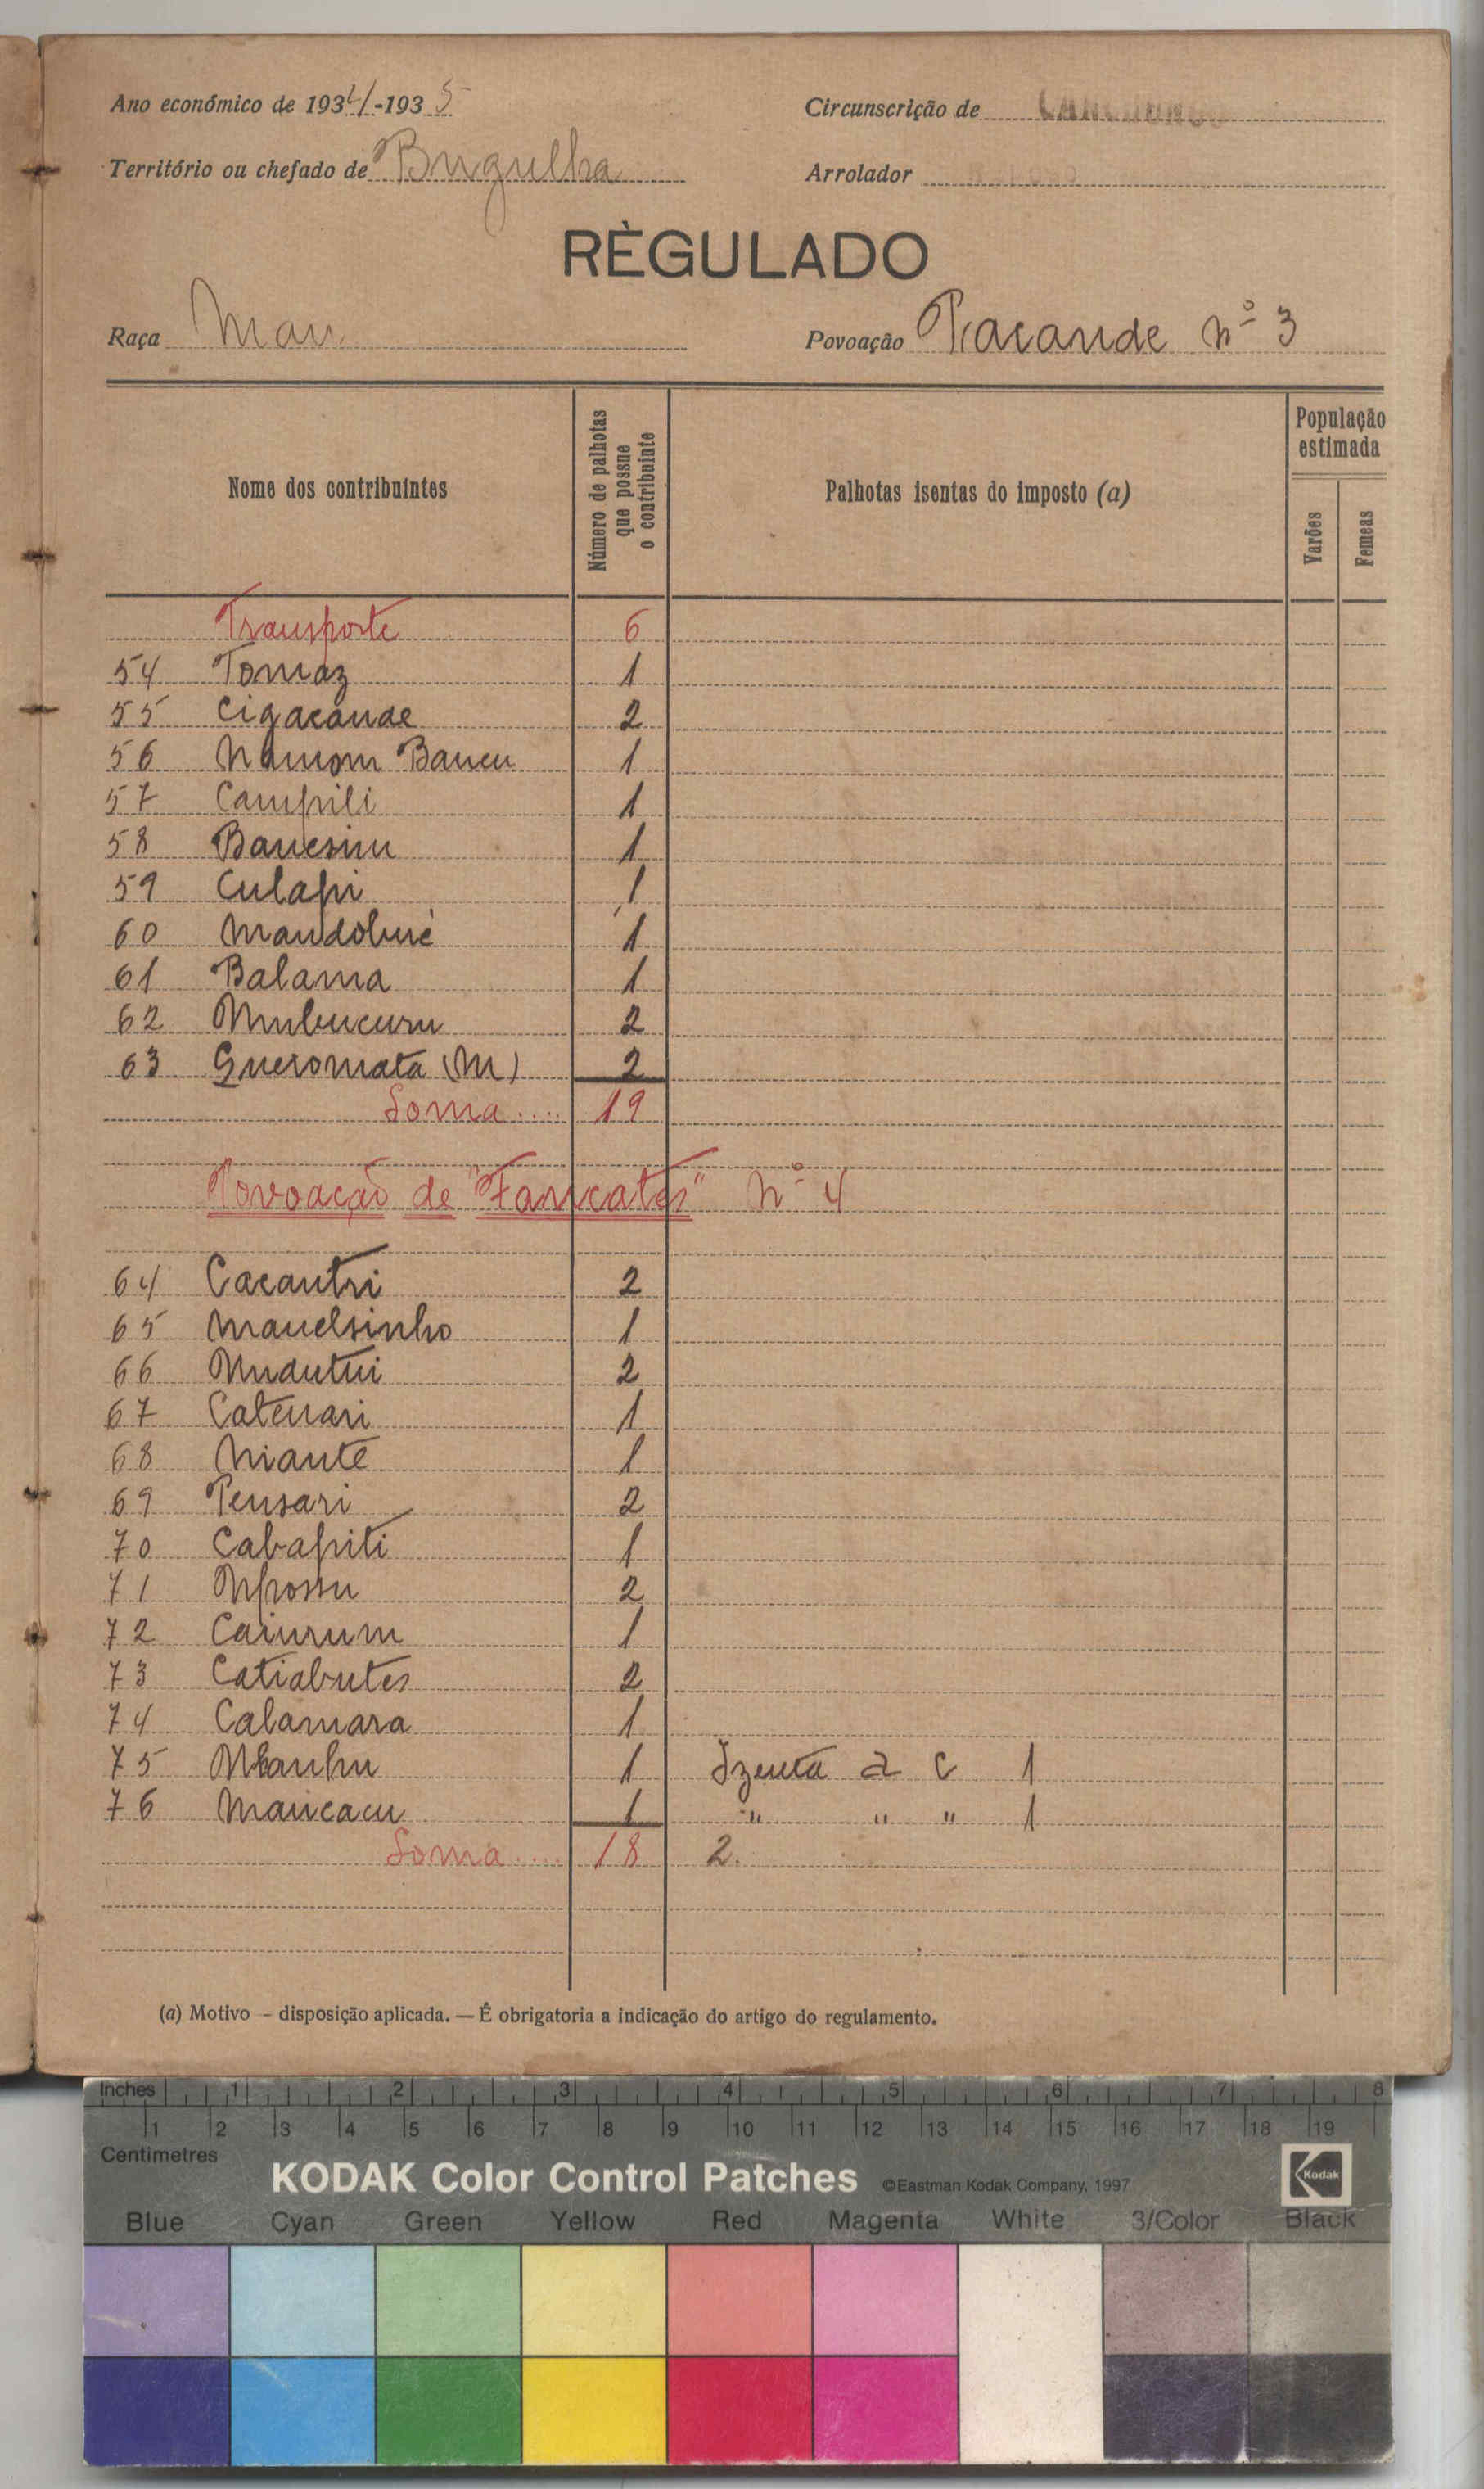 Ano económico de 1934-1935
Circunscrição de CANCHUNGO
Território ou chefado de Bugulha
Arrolador
RÈGULADO
Raça Man.
Povoação Pacande nº 3
Nome dos contribuintes
Número de palhotas que possue o contribuinte
Palhotas isentas do imposto (a)
População estimada
Varões
Femeas
Transporte 6
54 Tomaz 1
55 Cigacande 2
56 Namom Bancu 1
57 Campili 1
58 Banesim 1
59 Culapi 1
60 Mandolué 1
61 Balama 1
62 Mubucuru 2
63 Gueromata (M) 2
Soma.... 19
Povoação de "Fancatés" Nº 4
64 Cacantri 2
65 Manelsinho 1
66 Undutui 2
67 Catenari 1
68 Niante 1
69 Pensari 2
70 Cabapiti 1
71 Npossu 2
72 Caiurum 1
73 Catiabutes 2
74 Calamara 1
75 Nbanhu 1 Izenta a c 1
76 Mancacu 1 " " " 1
Soma.... 18 2.
(a) Motivo – disposição aplicada. — É obrigatoria a indicação do artigo do regulamento.
Inches 1 2 3 4 5 6 7 8
1 2 3 4 5 6 7 8 9 10 11 12 13 14 15 16 17 18 19
Centimetres
KODAK Color Control Patches ©Eastman Kodak Company, 1997 Kodak
Blue Cyan Green Yellow Red Magenta White 3/Color Black